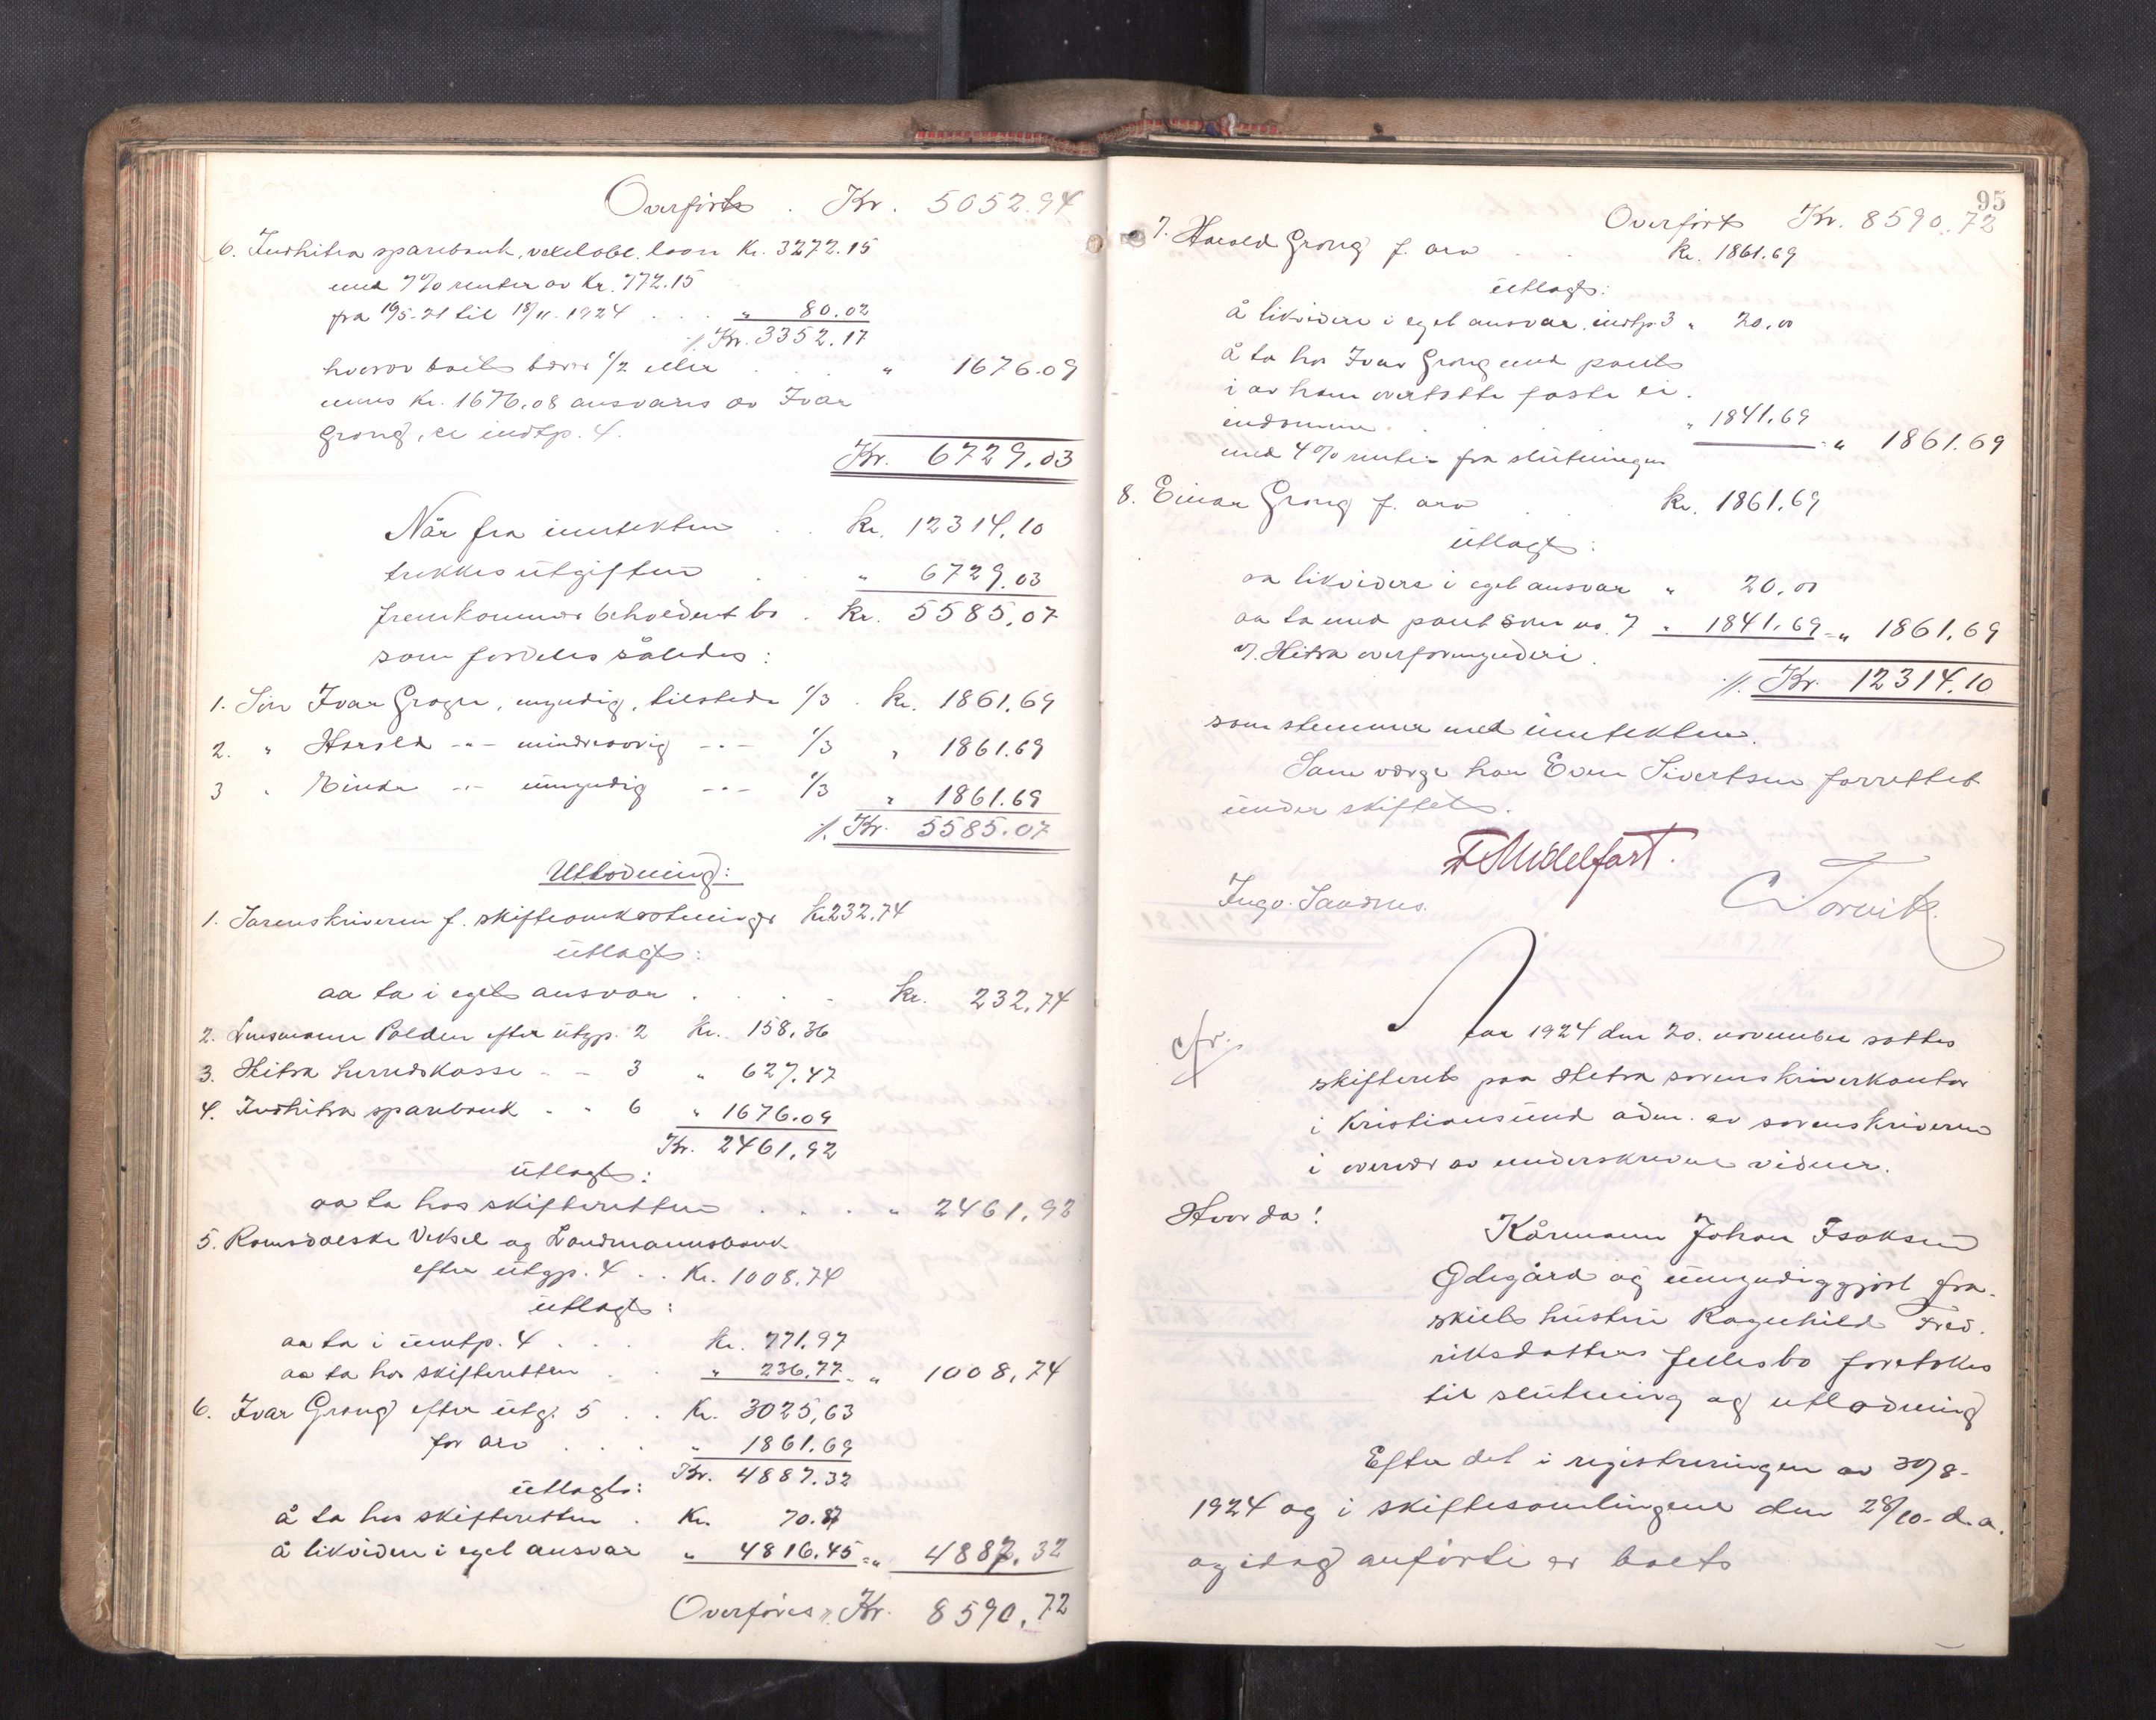 Overført . Kr. 5052.94
6. Indhitra sparebank, vekselobl. laan Kr. 3272.15
med 7% renter av Kr. 772.15
fra 19/5-21 til 18/11.1924 . . . " 80.02
./. Kr. 3352.17
hvorav boets bærer 1/2 eller . . . " 1676.09
mens Kr. 1676.08 ansvares av Ivar
Grong, se indtp. 4.
Kr. 6729.03
Når fra inntekten . . Kr. 12314.10
trekkes utgiften . " 6729.03
fremkommer beholdent bo . Kr. 5585.07
som fordeles således:
1. Søn Ivar Grogn, myndig, tilstede 1/3 . Kr. 1861.69
2. " Harald -"- mindreaarig -"- 1/3 " 1861.69
3 " Einar -"- umyndig -"- 1/3 " 1861.69
./. Kr. 5585.07
Utlodning:
1. Sorenskriveren f. skifteomkostninger Kr. 232.74
utlagt:
aa ta i eget ansvar . . . . Kr. 232.74
2. Lensmann Palden efter utgp. 2 Kr. 158.36
3. Hitra herredskasse - - 3 " 627.47
4. Indhitra sparebank - " 6 " 1676.09
Kr. 2461.92
utlagt:
aa ta hos skifteretten . . . " 2461.92
5. Romsdalske Veksel og Landmannsbank
efter utgp. 4 . . Kr. 1008.74
utlagt:
aa ta i inntp. 4 . . . Kr. 771.97
aa ta hos skifteretten . . " 236.77 = " 1008.74
6. Ivar Grong efter utg. 5 . . Kr. 3025,63
for arv . . . " 1861.69
Kr. 4887.32
utlagt:
å ta hos skifteretten . Kr. 70.87
å likvidere i eget ansvar " 4816.45 = " 4887.32
Overføres ./. Kr. 8590.72
95
Overført Kr. 8590.72
7. Harald Grong f. arv . . Kr. 1861.69
utlagt:
å likvidere i eget ansvar, indtp. 3 " 20.00
å ta hos Ivar Grong med pant
i av ham overtatte faste ei-
endomme . . . " 1841.69
" 1861.69
med 4% renter fra slutningen
8. Einar Grong f. arv . Kr. 1861.69
utlagt:
aa likvidere i eget ansvar " 20.00
aa ta med pant som no. 7 " 1841.69 = " 1861.69
v. Hitra overformynderi.
./. Kr. 12314.10
som stemmer med inntekten.
Som verge har Even Sivertsen forrettet
under skiftet.
F Midelfart.
Ingv. Sandnes. C Torvik
Aar 1924 den 20. november sattes
cfr.
skifteret paa Hitra sorenskriverkontor
i Kristiansund adm. av sorenskriveren
i overvær av underskrevne vidner.
Hvor da!
Kårmann Johan Isaksen
Ødegård og umyndiggjort fra-
skilt hustru Ragnhild Fred-
riksdatters fellesbo foretokes
til slutning og utlodning
Efter det i registreringen av 30/8-
1924 og i skiftesamlingene den 28/10- d.a.
og idag anførte er boets